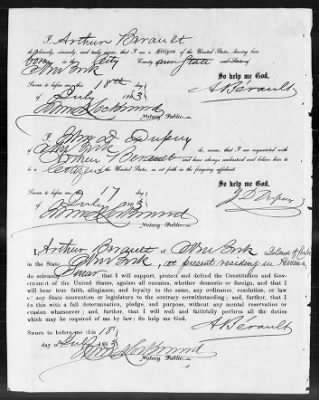 I, Arthur Berault do
solemnly, sincerely, and truly swear, that I am a Citizen of the United States, having been
born in the City County and State of
New York
So help me God.
Sworn to before me this 18th day
of July 1863
A Bérault
Notary Public.
I,
of New York do swear, that I am acquainted with
Arthur Berault and have always understood and believe him to
be a Citizen of the United States, as set forth in the foregoing affidavit.
So help me God.
Sworn to before me this 17 day
of July 1863
Notary Public.
I, Arthur Berault of New York
in the State New York, at present residing in Havana Island of Cuba
do solemnly swear that I will support, protect and defend the Constitution and Gov-
ernment of the United States, against all enemies, whether domestic or foreign, and that I
will bear true faith, allegiance, and loyalty to the same, any ordinance, resolution, or law
of any State convention or legislature to the contrary notwithstanding; and, further, that I
do this with a full determination, pledge, and purpose, without any mental reservation or
evasion whatsoever; and, further, that I will well and faithfully perform all the duties
which may be required of me by law: So help me God.
A Bérault
Sworn to before me this 18
day of July 1863
Notary Public.